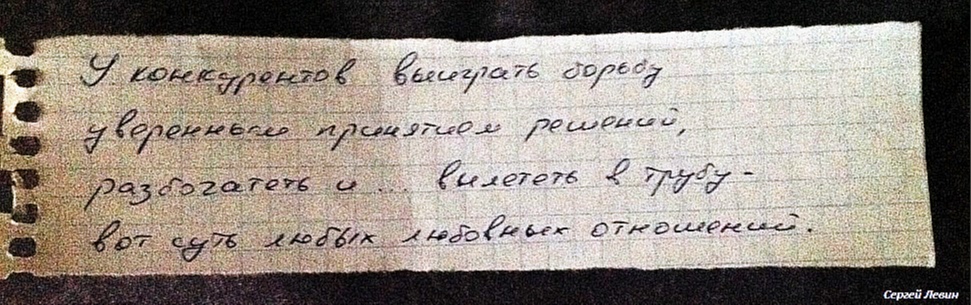 У конкурентов выиграть борьбу
уверенным принятием решений,
разбогатеть и ... вылететь в трубу -
вот суть любых любовных отношений.
Сергей Левин